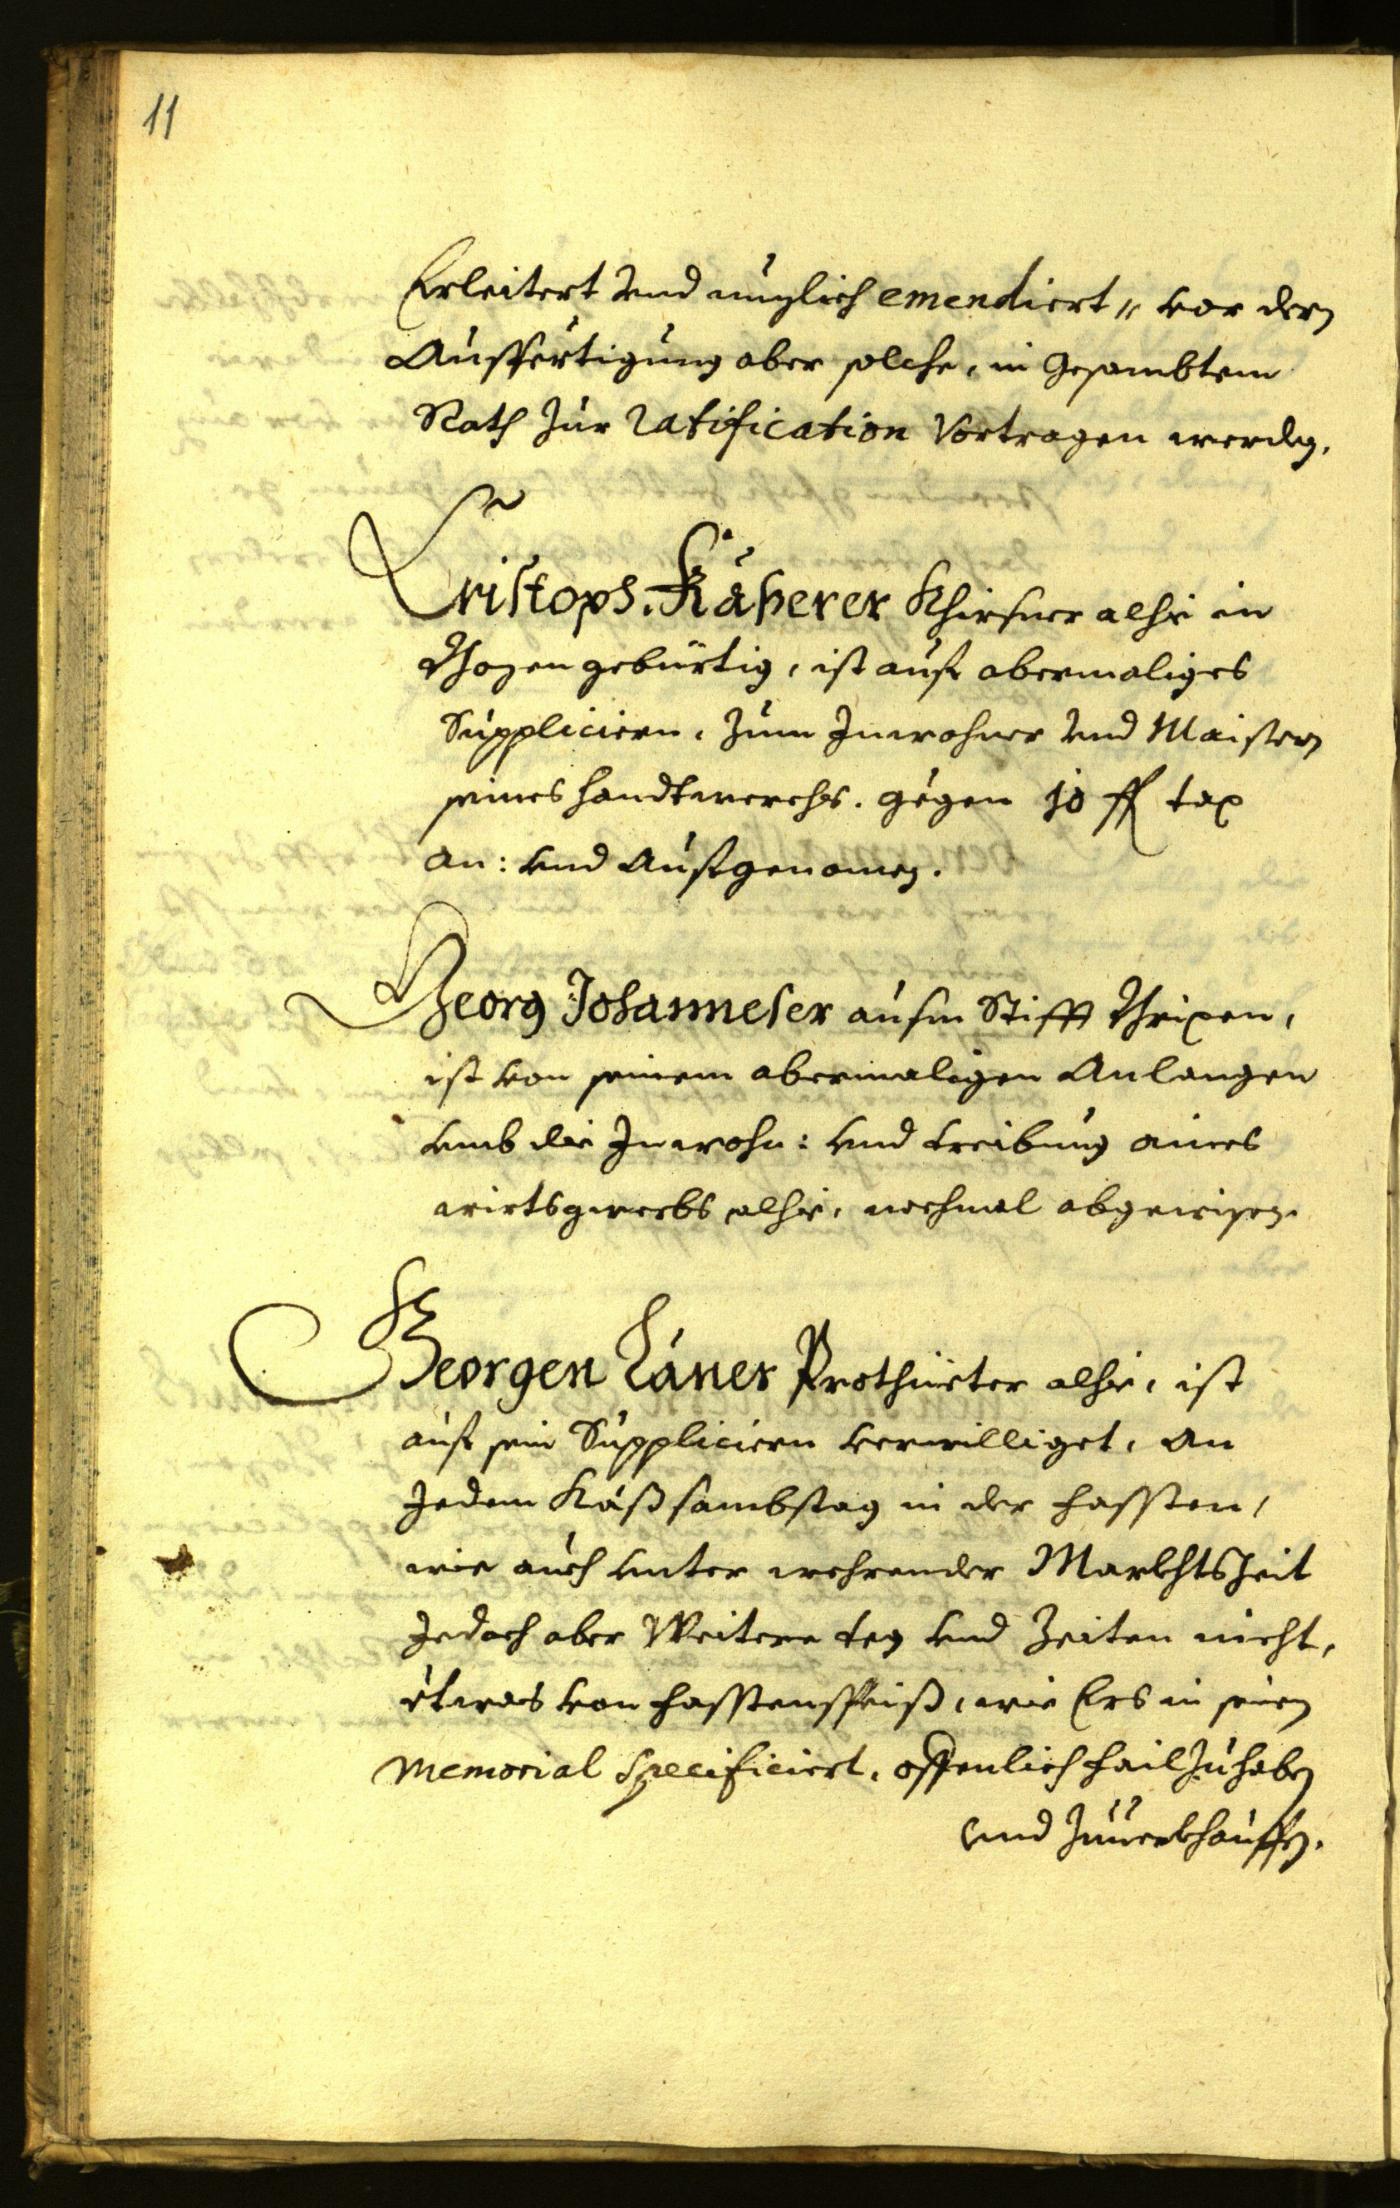 11
Erleitert und müglich emendiert, vor dern
Ausfertigung aber solche, in gesambtem
Rath zur ratification Vortragen werden.
Cristoph Käserer Khirsner alhie in
Bozen gebürtig, ist auf abermaliges
Suppliciern, zum Inwohner und Maistern
seines handtwerchs. gegen 10 fl tax
an: und Aufgenomen.
Georg Johanneser ausm Stifft Brixen,
ist von seinem abermaligen Anlangen
umb die Inwohn: und treibung aines
wirtsgwerbs alhie, nochmal abgewisen.
Georgen Laner Prothüeter alhie, ist
auf sein Suppliciern verwilliget, an
Jedem Käßsambstag in der fassten,
wie auch unter wehrender Markhtszeit
Jedoch aber Weitere tag und Zeiten nicht,
etwas von fasstenspeiß, wie Ers in seinen
Memorial specificiert, offenlich fail zuhaben
und zuverkhauffen.